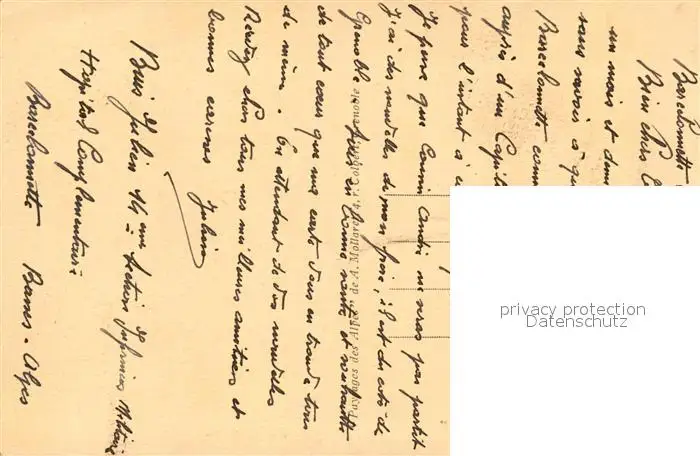 Barcelonnette
Bien chers
un mois et dem
sans savoir à qu
Barcelonnette comm
auprès d'un Capit
pour l'instant à
Je pense que Cousin André ne seras pas partit
j'ai des nouvelles de mon frère, il est du coté de
Grenoble, suis en bonne santé et souhaitte
de tout cœur que ma carte vous en trouve tous
de même. En attendant de vos nouvelles
Recevez chers tous mes meilleures amitiés et
bonnes caresses Julien
Julien 14eme Section Infirmiers Militaire
Hopital Complementaire
Barcelonnette Basses-Alpes
"Paysages des Alpes" de A. Mollaret, 4, r. Colbert, Grenoble
privacy protection
Datenschutz